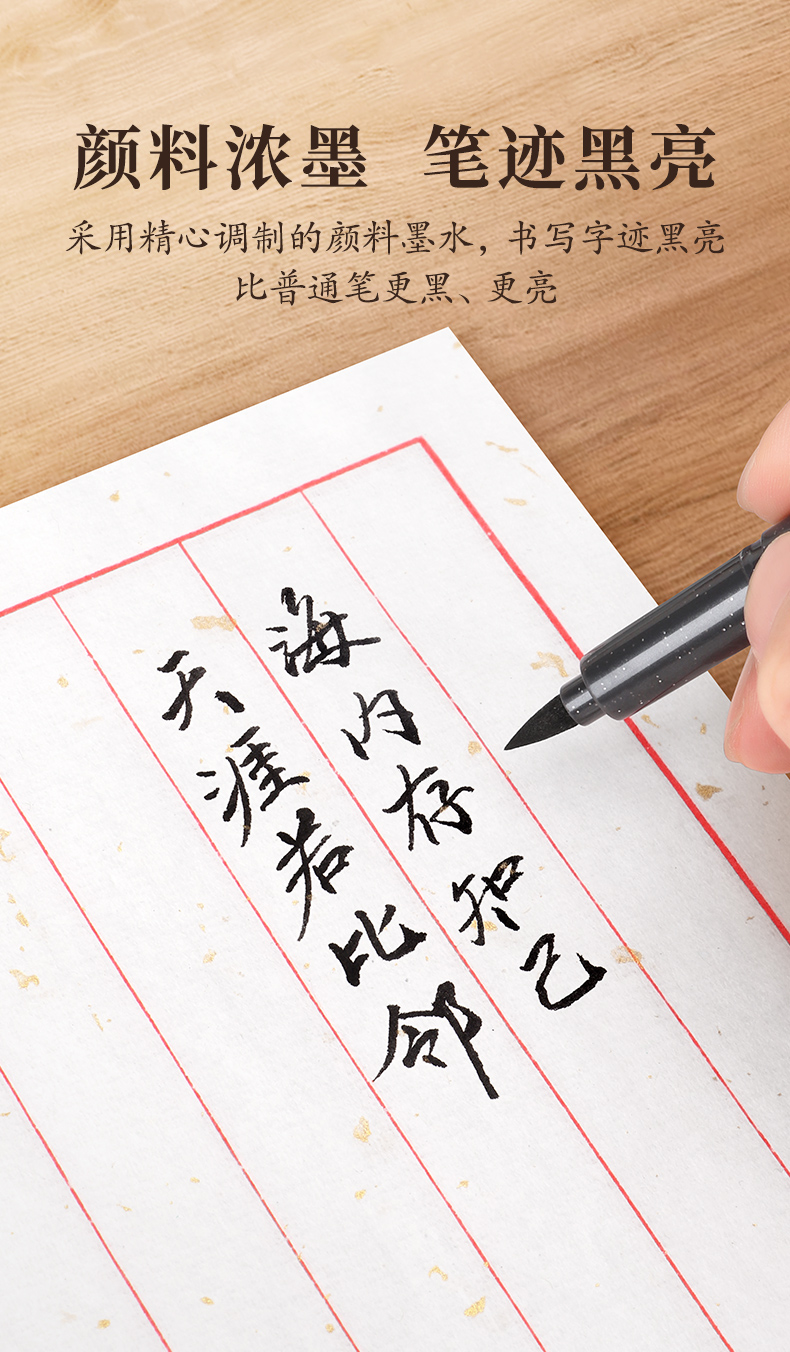 颜料浓墨 笔迹黑亮
采用精心调制的颜料墨水，书写字迹黑亮
比普通笔更黑、更亮
海内存知己
天涯若比邻